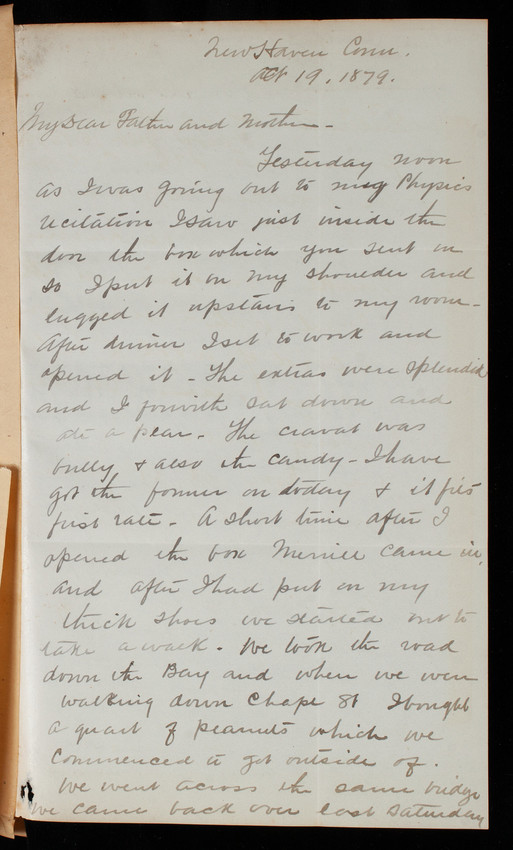 New Haven Conn.
Oct 19, 1879.
My Dear Father and Mother -
Yesterday noon
as I was going out to my Physics
recitation I saw just inside the
door the box which you sent on
so I put it on my shoulder and
lugged it upstairs to my room -
After dinner I set to work and
opened it - The extras were splendid
and I forwith sat down and
ate a pear. The cravat was
bully & also the candy - I have
got the former on today & it fits
first rate - A short time after I
opened the box Merrill came in,
and after I had put on my
thick shoes we started out to
take a walk. We took the road
down the Bay and when we were
walking down Chape St I bought
a quart of peanuts which we
commenced to get outside of.
We went across the same bridge
we came back over last Saturday